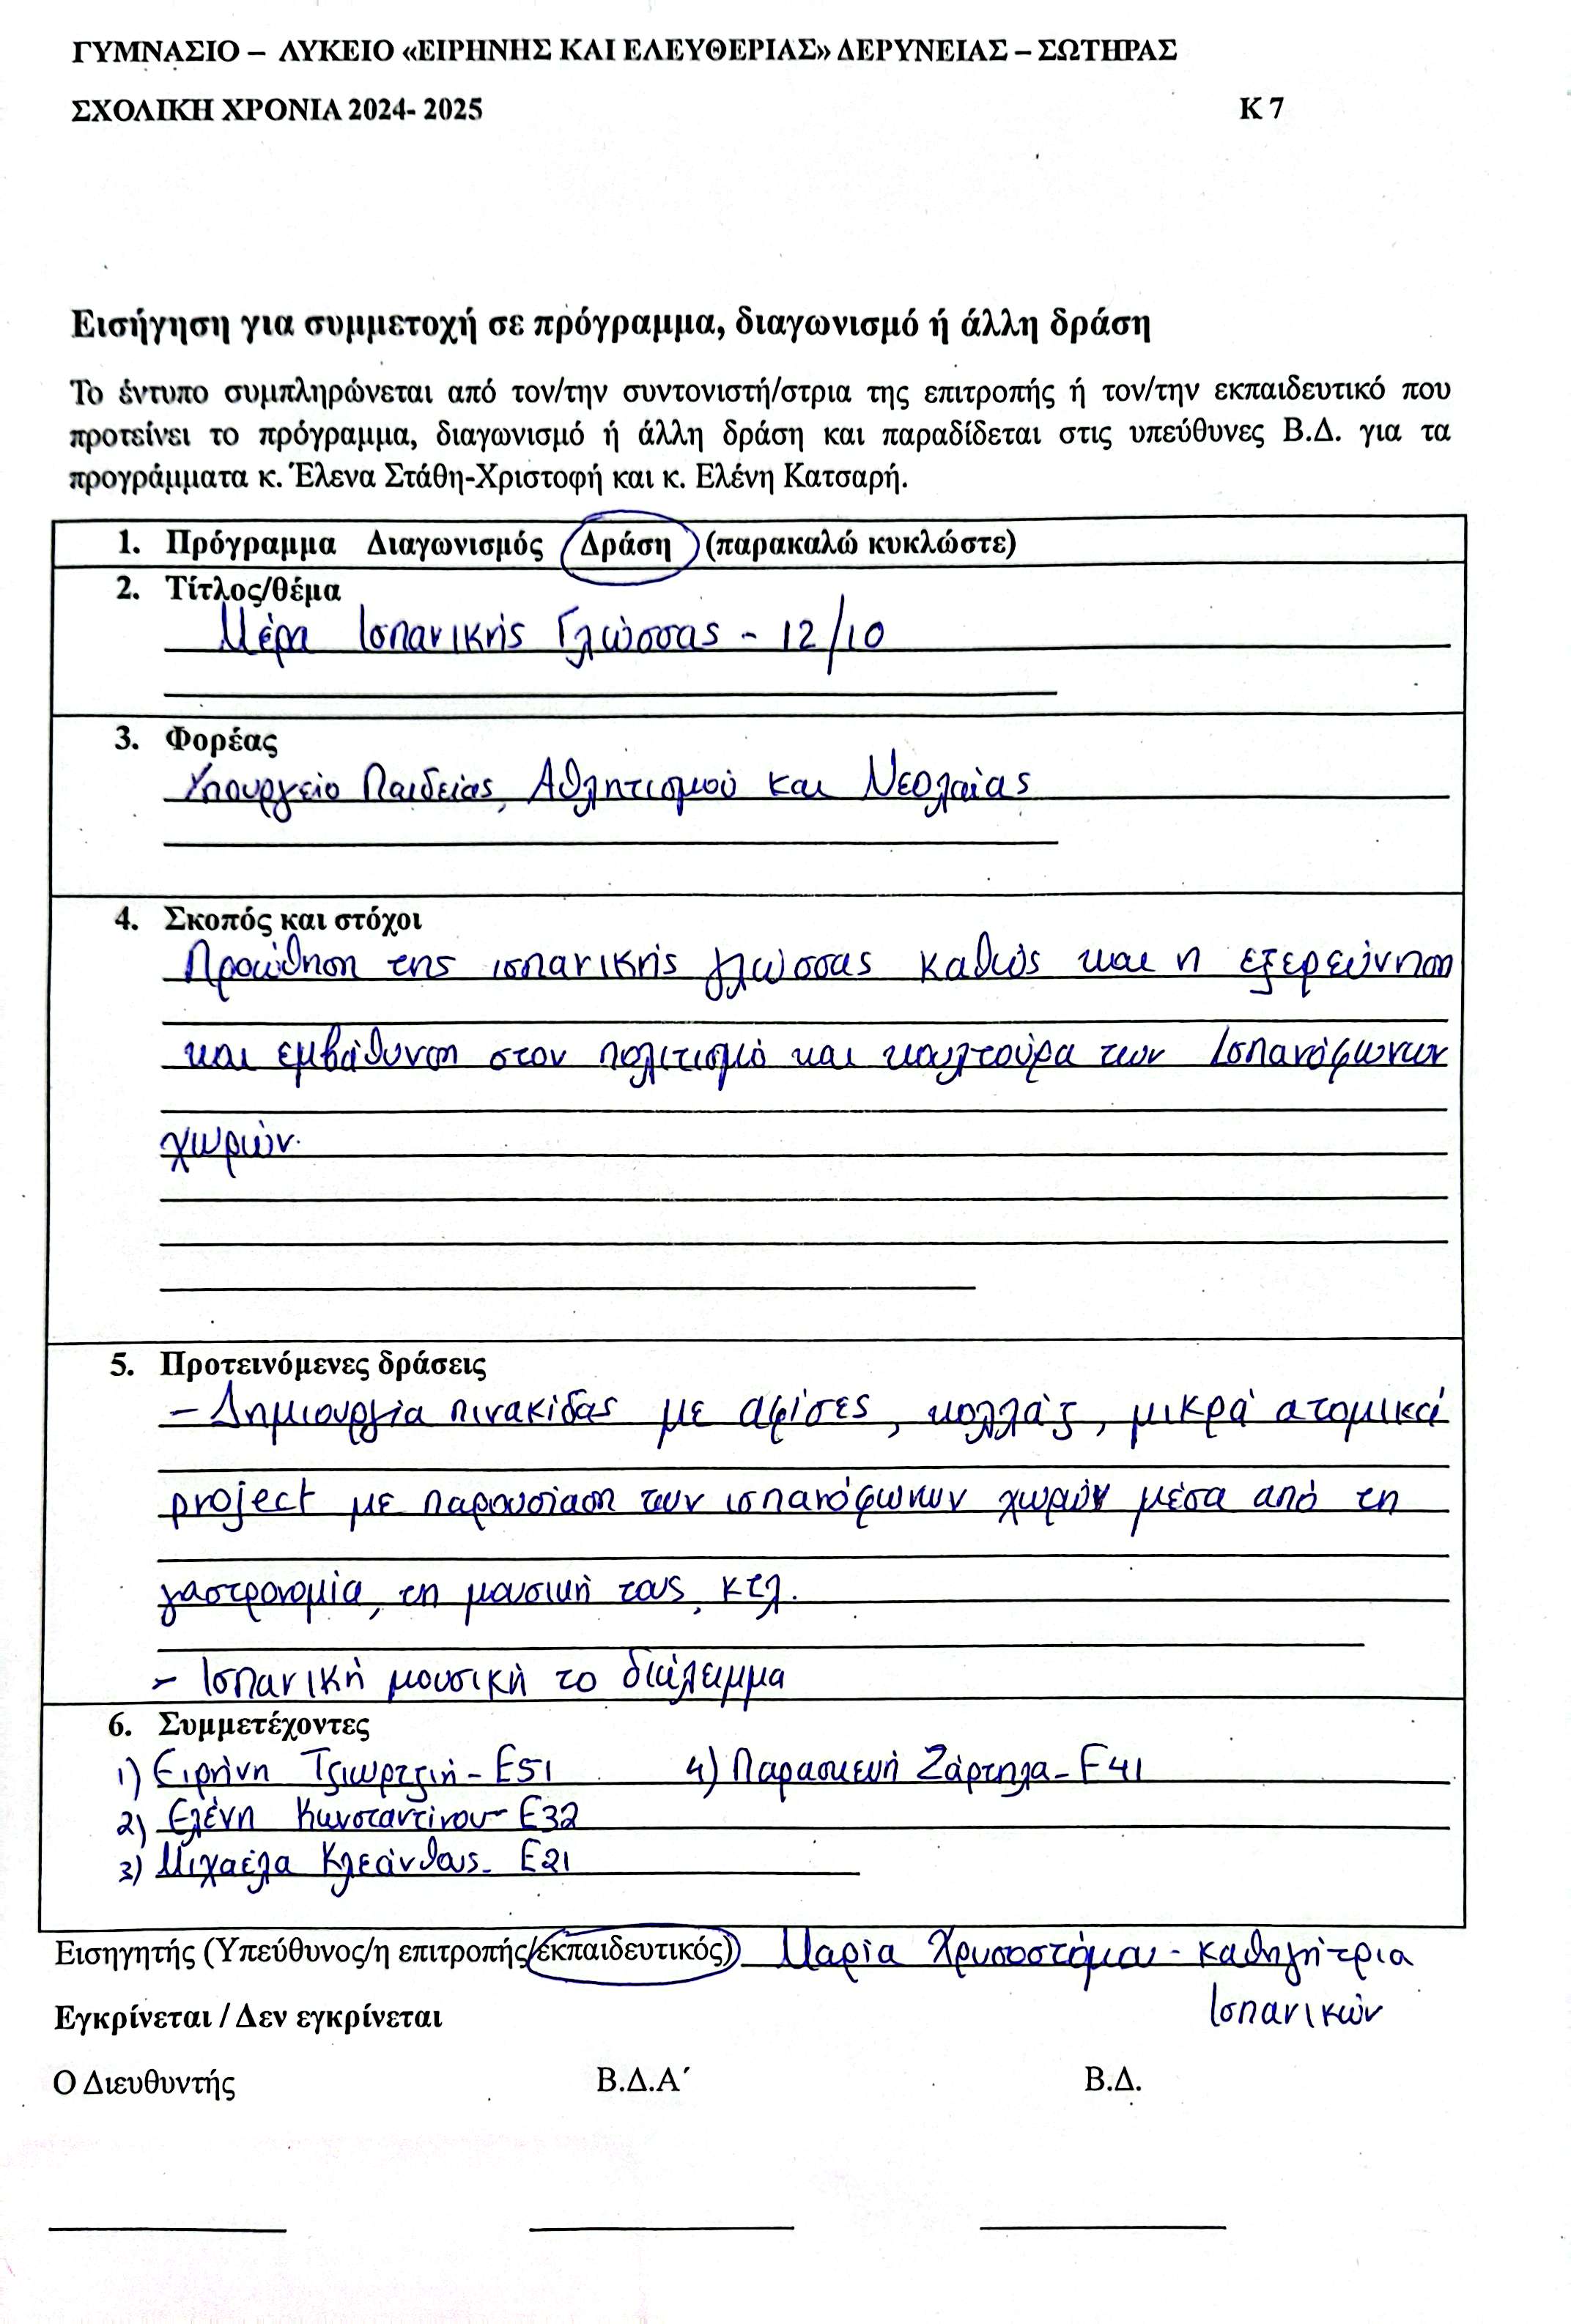 ΓΥΜΝΑΣΙΟ – ΛΥΚΕΙΟ «ΕΙΡΗΝΗΣ ΚΑΙ ΕΛΕΥΘΕΡΙΑΣ» ΔΕΡΥΝΕΙΑΣ – ΣΩΤΗΡΑΣ
ΣΧΟΛΙΚΗ ΧΡΟΝΙΑ 2024- 2025 Κ 7
Εισήγηση για συμμετοχή σε πρόγραμμα, διαγωνισμό ή άλλη δράση
Το έντυπο συμπληρώνεται από τον/την συντονιστή/στρια της επιτροπής ή τον/την εκπαιδευτικό που
προτείνει το πρόγραμμα, διαγωνισμό ή άλλη δράση και παραδίδεται στις υπεύθυνες Β.Δ. για τα
προγράμματα κ. Έλενα Στάθη-Χριστοφή και κ. Ελένη Κατσαρή.
1. Πρόγραμμα Διαγωνισμός Δράση (παρακαλώ κυκλώστε)
2. Τίτλος/θέμα
Μέρα Ισπανικής Γλώσσας - 12/10
3. Φορέας
Υπουργείο Παιδείας, Αθλητισμού και Νεολαίας
4. Σκοπός και στόχοι
Προώθηση της ισπανικής γλώσσας καθώς και η εξερεύνηση
και εμβάθυνση στον πολιτισμό και κουλτούρα των Ισπανόφωνων
χωρών.
5. Προτεινόμενες δράσεις
– Δημιουργία πινακίδας με αφίσες, κολλάζ, μικρά ατομικά
project με παρουσίαση των ισπανόφωνων χωρών μέσα από τη
γαστρονομία, τη μουσική τους, κτλ.
– Ισπανική μουσική το διάλειμμα
6. Συμμετέχοντες
1) Ειρήνη Τζιωρτζή - Ε51 4) Παρασκευή Ζάρτηλα - Ε41
2) Ελένη Κωνσταντίνου - Ε32
3) Μιχαέλα Κλεάνθους - Ε21
Εισηγητής (Υπεύθυνος/η επιτροπής/εκπαιδευτικός) Μαρία Χρυσοστόμου - καθηγήτρια
Ισπανικών
Εγκρίνεται / Δεν εγκρίνεται
Ο Διευθυντής Β.Δ.Α΄ Β.Δ.